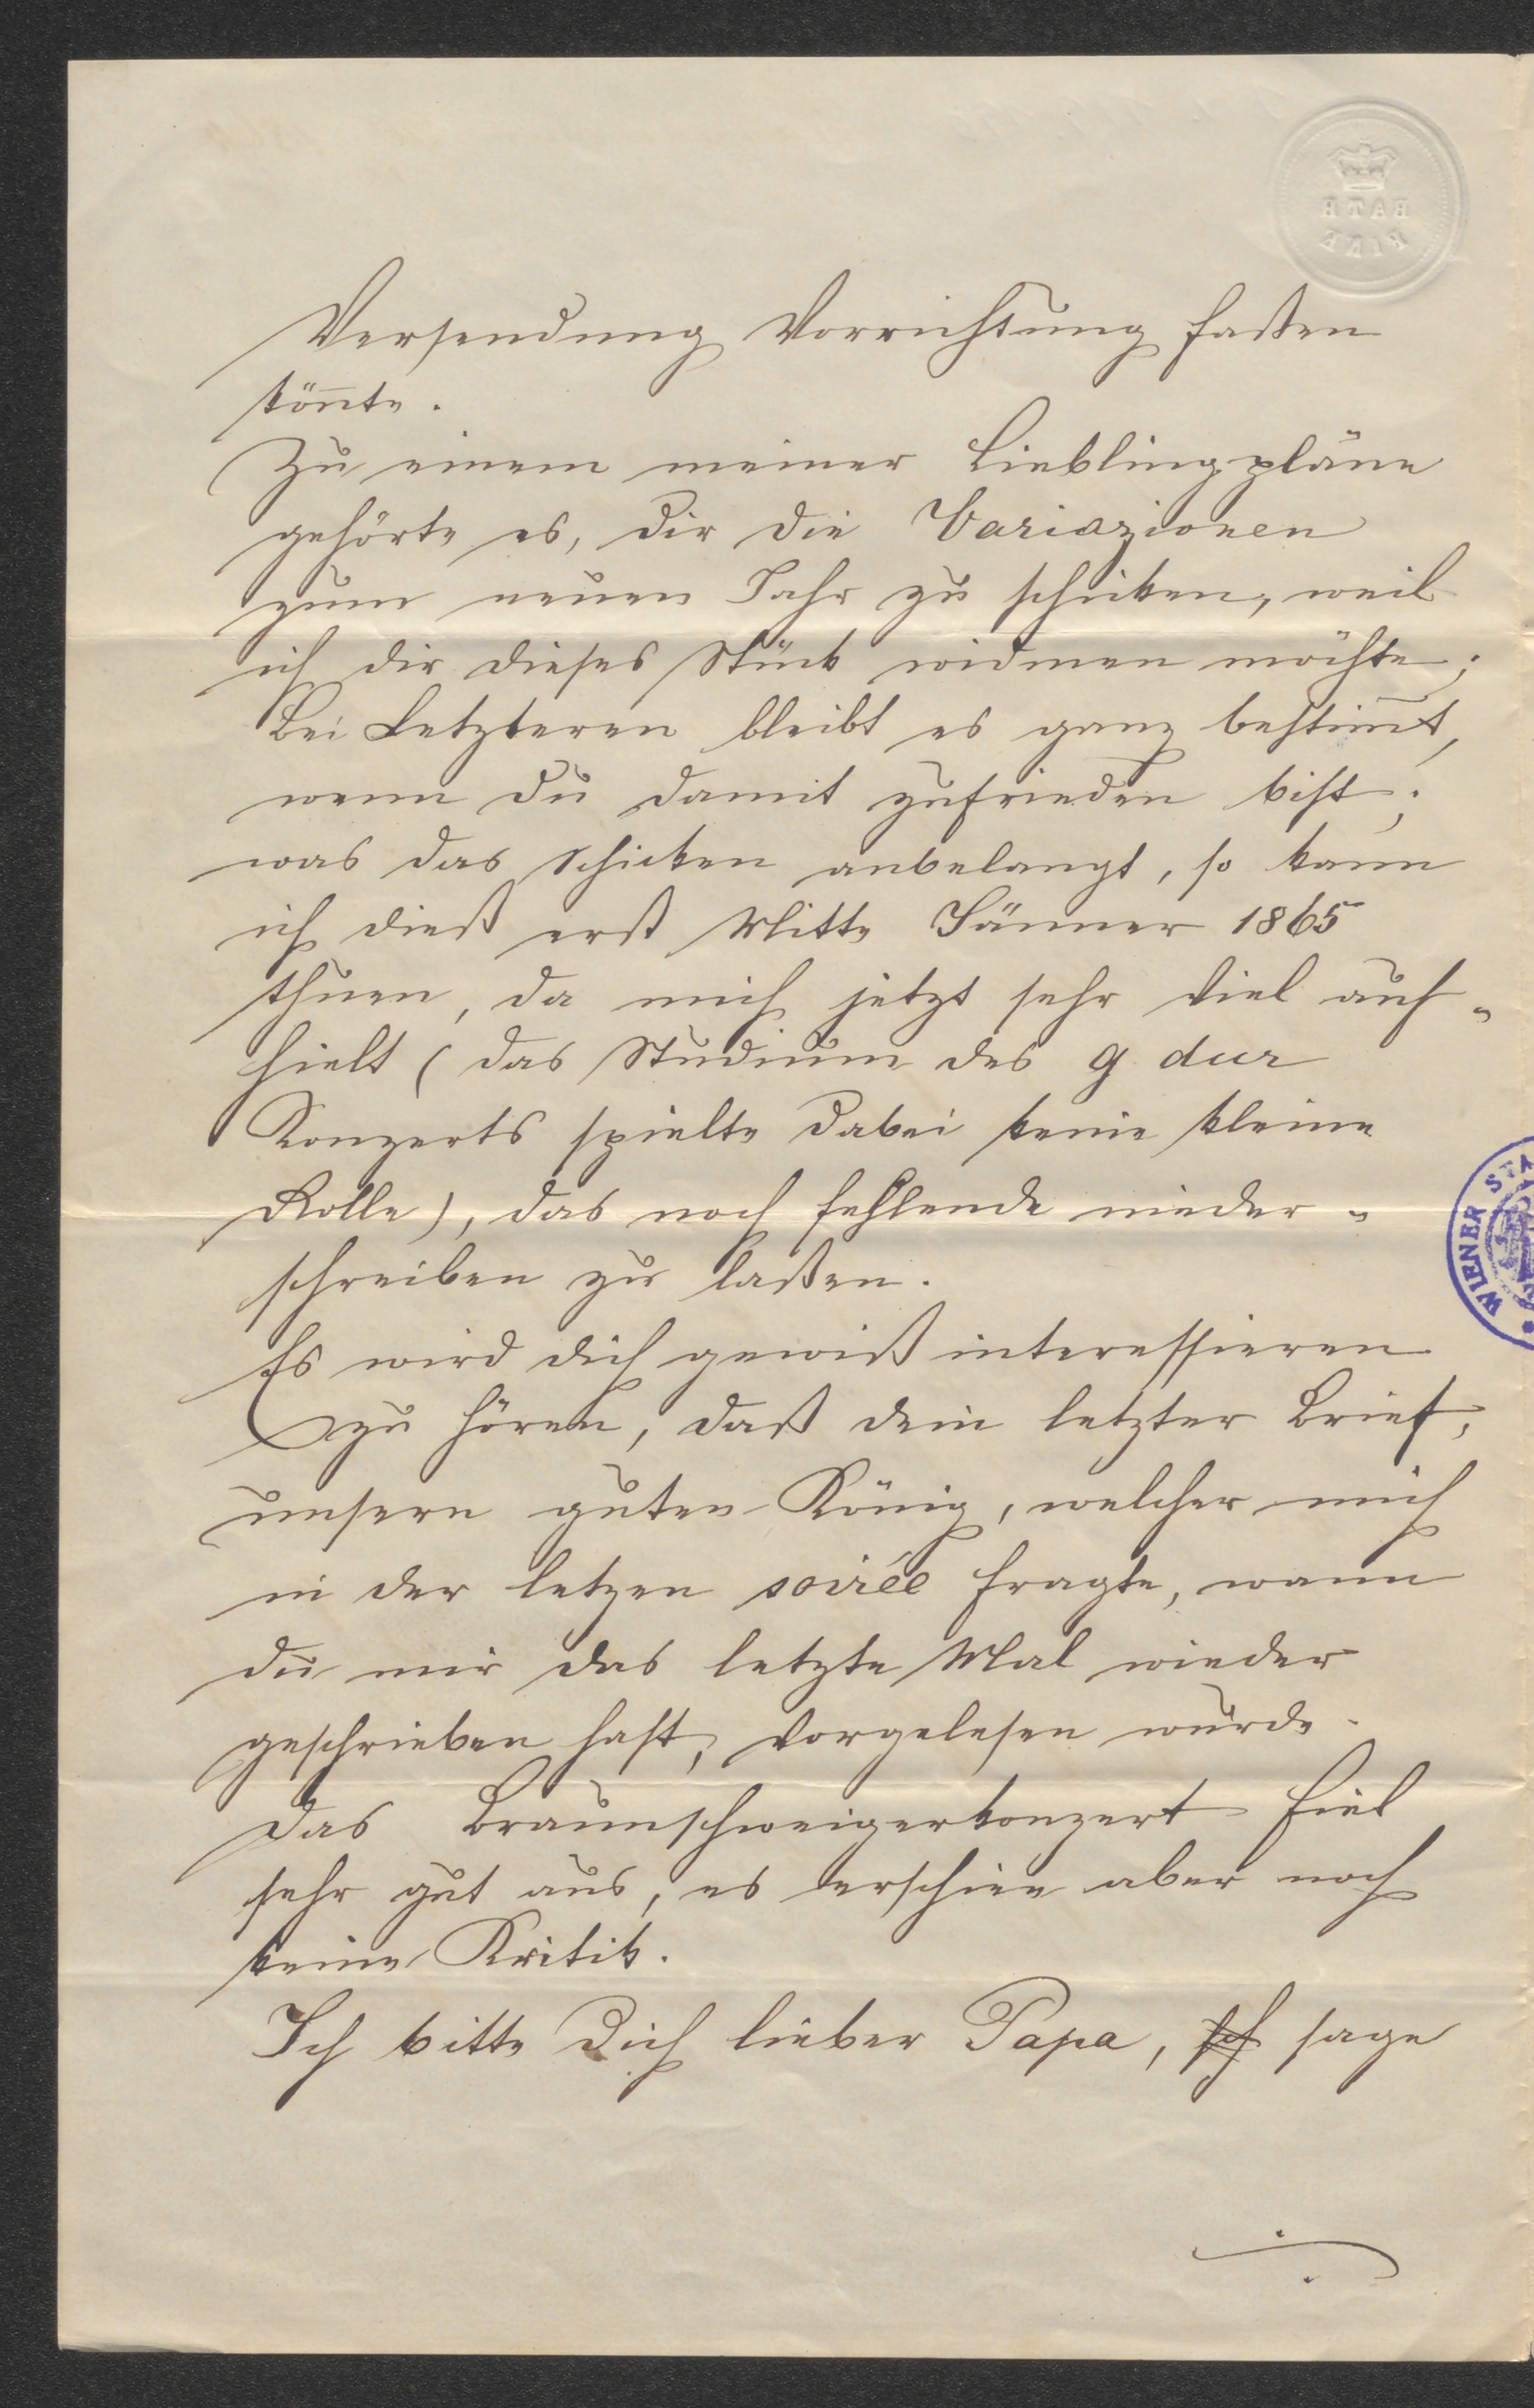 BATH
Versendung Vorrichtung faßen
kön̄te.
Zu einem meiner Lieblingspläne
gehörte es, dir die Variazionen
zum neuen Jahr zu schicken, weil
ich dir dieses Stück widmen möchte;
Bei Letzteren bleibt es ganz bestim̄t,
wenn du damit zufrieden bist;
was das Schicken anbelangt, so kann
ich dieß erst Mitte Jänner 1865
thuen, da mich jetzt sehr viel auf-
hielt (das Studium des g dur
Konzerts spielte dabei keine kleine
Rolle), das noch fehlende nieder-
schreiben zu laßen.
Es wird dich gewiß interessieren
zu hören, daß dein letzter Brief,
unsern guten König, welcher mich
in der letzen soirée fragte, wann
du mir das letzte Mal wieder
geschrieben hast, vorgelesen wurde.
Das Braunschweigerkonzert fiel
sehr gut aus, es erschien aber noch
keine Kritik.
Ich bitte Dich lieber Papa, sage
WIENER STA